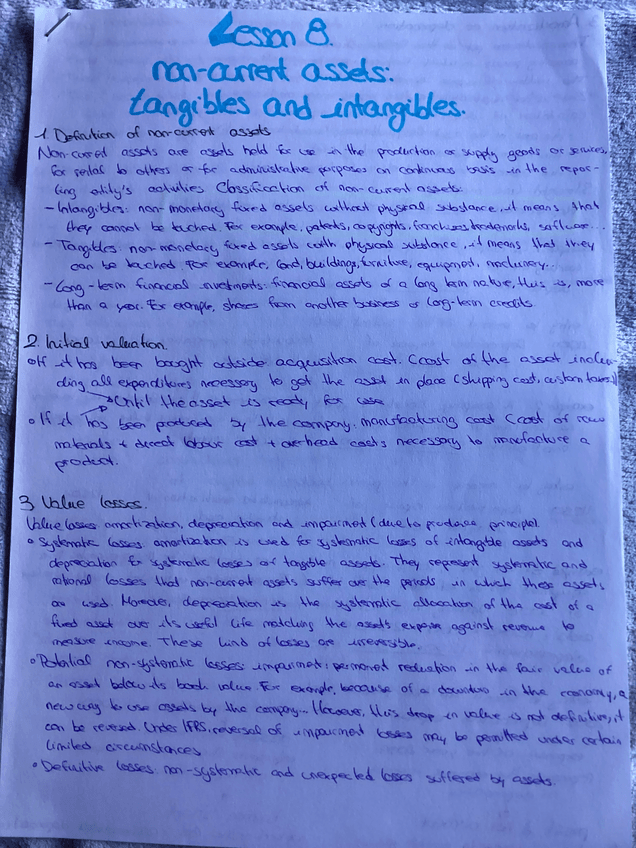 Lesson 8.
non-current assets:
tangibles and intangibles.
1. Definition of non-current assets
Non-current assets are assets held for use in the production or supply goods or services,
for rental to others or for administrative purposes on continuous basis in the repor-
ting entity's activities Classification of non-current assets:
- Intangibles: non-monetary fixed assets without physical substance, it means that
they cannot be tuched. For example, patents, copyrights, franchises, trademarks, software...
- Tangibles: non-monetary fixed assets with physical substance, it means that they
can be tuched. For example, land, buildings, furniture, equipment, machinery...
- Long-term financial investments: financial assets of a long term nature, this is, more
than a year. For example, shares from another business or long-term credits.
2. Initial valuation.
• If it has been bought outside: acquisition cost. (cost of the asset inclu-
ding all expenditures necessary to get the asset in place (shipping cost, custom taxes))
Until the asset is ready for use
• If it has been produced by the company: manufacturing cost (cost of raw
materials + direct labour cost + overhead costs necessary to manufacture a
product.
3. Value losses.
Value losses: amortization, depreciation and impairment (due to prudence principle).
• Systematic losses: amortization is used for systematic losses of intangible assets and
depreciation for systematic losses of tangible assets. They represent systematic and
rational losses that non-current assets suffer over the periods in which these assets
are used. Moreover, depreciation is the systematic allocation of the cost of a
fixed asset over its useful life matching the assets expense against revenue to
measure income. These kind of losses are irreversible.
• Potential non-systematic losses: impairment: permanent reduction in the fair value of
an asset below its book value. For example, because of a downturn in the economy, a
new way to use assets by the company... However, this drop in value is not definitive, it
can be reversed. Under IFRS, reversal of impairment losses may be permitted under certain
limited circumstances
• Definitive losses: non-systematic and unexpected losses suffered by assets.